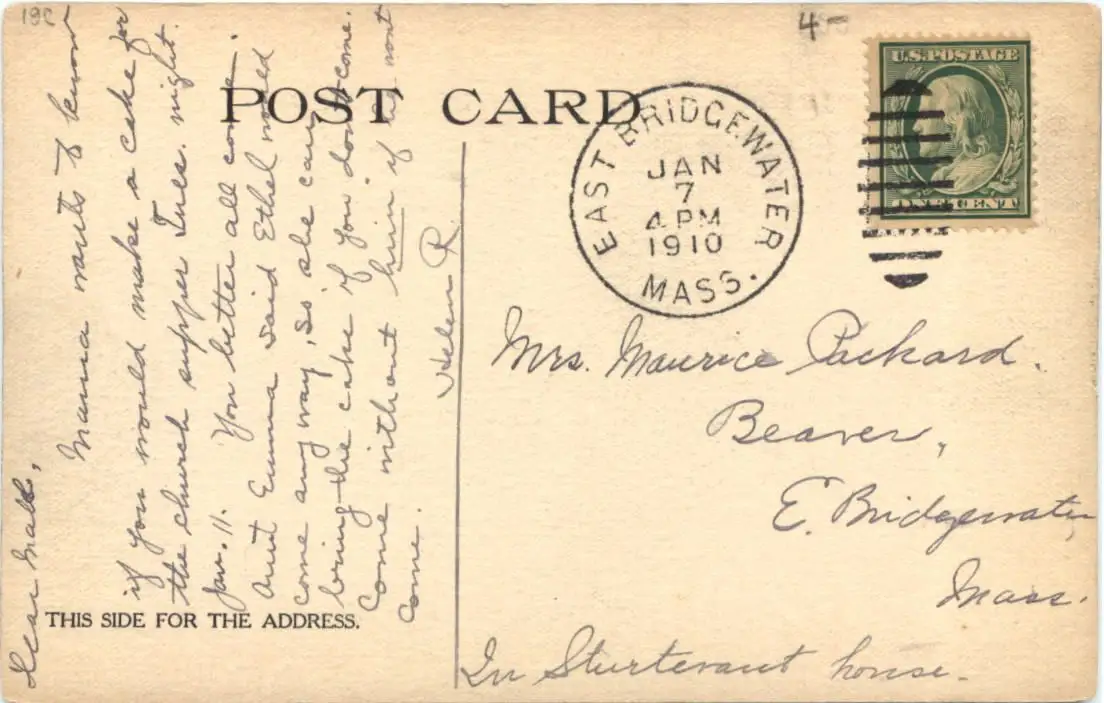 18C
4-
POST CARD
U.S. POSTAGE
ONE CENT
EAST BRIDGEWATER
JAN
7
4 PM
1910
MASS.
Dear
Mamma wants to know
if you would make a cake for
the church supper Tues. night.
Jan. 11. You better all come.
Aunt Emma said Ethel could
come anyway, so she can
bring the cake if you don't come.
Come without him if he won't
come.
Helen R.
Mrs. Maurice Packard.
Beaver,
E. Bridgewater
Mass.
In Sturtevant house.
THIS SIDE FOR THE ADDRESS.